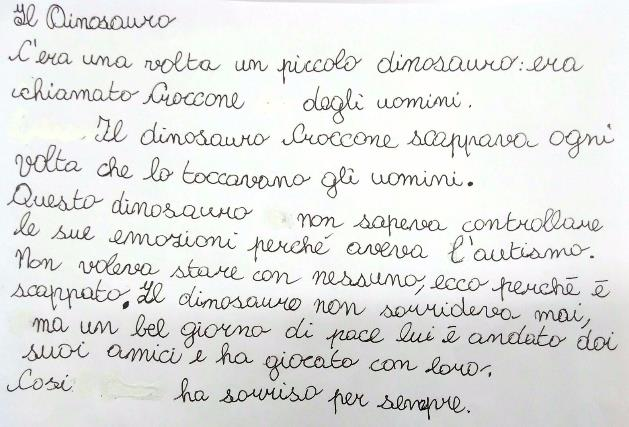 Il Dinosauro
C'era una volta un piccolo dinosauro: era
chiamato Croccone degli uomini.
Il dinosauro Croccone scappava ogni
volta che lo toccavano gli uomini.
Questo dinosauro non sapeva controllare
le sue emozioni perché aveva l'autismo.
Non voleva stare con nessuno, ecco perché è
scappato. Il dinosauro non sorrideva mai,
ma un bel giorno di pace lui è andato doi
suoi amici e ha giocato con loro.
Cosi ha sorriso per sempre.